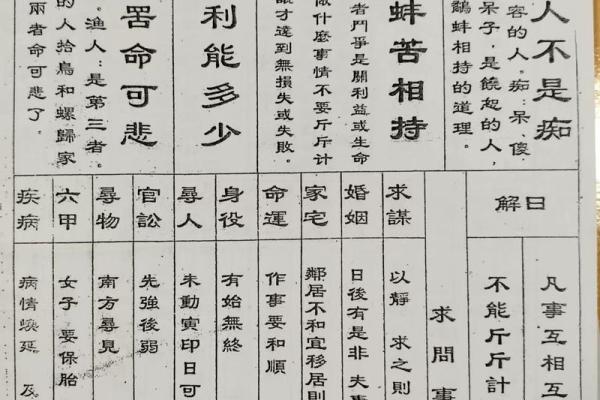 人不是痴
容的人。痴：呆、傻、
呆子，是饒恕的人，
鷸蚌相持的道理。
蚌苦相持
者鬥爭是關利益或生命
做什麼事情不要斤斤計
議才達到無損失或失敗。
利能多少
罟命可悲
。漁人：是第三者。
的人拾鳥和螺歸家
兩者命可悲了。
日解
凡事互相互
不能斤斤計
求問事
求謀
以靜 求之則
婚姻
日後有是非 夫
家宅
鄰居不和宜移居則
命運
作事要和順
身役
有始無終
尋人
未動寅印日可
官訟
先強後弱
尋物
南方尋見
六甲
女子 要保胎
疾病
病情緩延 及